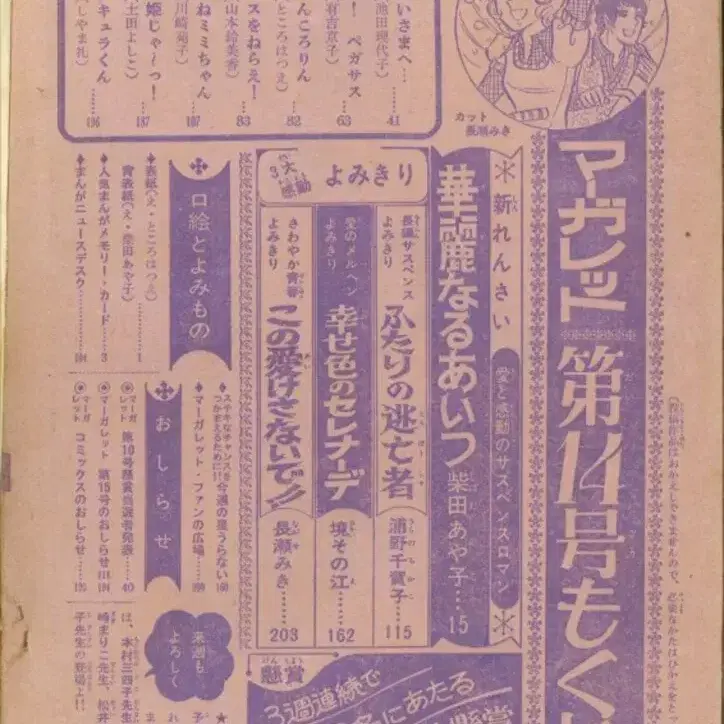 マーガレット 第14号もく
カット
長瀬みき
新れんさい
愛と感動のサスペンスロマン
華麗なるあいつ 柴田あや子…15
3大感動
よみきり
長編サスペンス
よみきり
ふたりの逃亡者 浦野千賀子……115
愛のメルヘン
よみきり
幸せ色のセレナーデ 境その江……162
さわやか青春
よみきり
この愛けさないで!! 長瀬みき……203
いさまへ…
池田理代子)……41
! ペガサス
有吉京子)……63
んころりん
ところはつえ)……82
スをねらえ!
山本鈴美香)……83
ねミミちゃん
川崎苑子)……107
姫じゃ〜っ!
土田よしこ)……137
キュラくん
しやま礼)……196
口絵とよみもの
表紙(え・ところはつえ)
背表紙(え・柴田あや子)……1
人気まんがメモリー・カード……3
まんがニュースデスク……104
ステキなチャンスを
つかまえるために!! 今週の星うらない
マーガレット・ファンの広場……
おしらせ
マーガレット 第10号懸賞当選者発表……40
マーガレット 第15号のおしらせ
マーガレット コミックスのおしらせ……
来週も
よろしく
は、本村三四子先生
崎まりこ先生、松井
子先生の登場よ!!
懸賞
3週連続で
にあたる